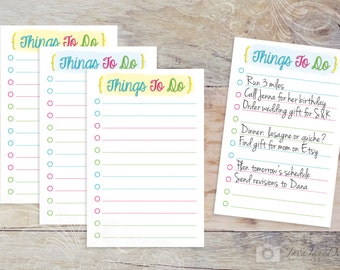 { Things To Do }
{ Things To Do }
{ Things To Do }
{ Things To Do }
Run 3 miles
Call Jenna for her birthday
Order wedding gift for S&K
Dinner: lasagne or quiche?
Find gift for mom on Etsy
Plan tomorrow's schedule
Send revisions to Dana